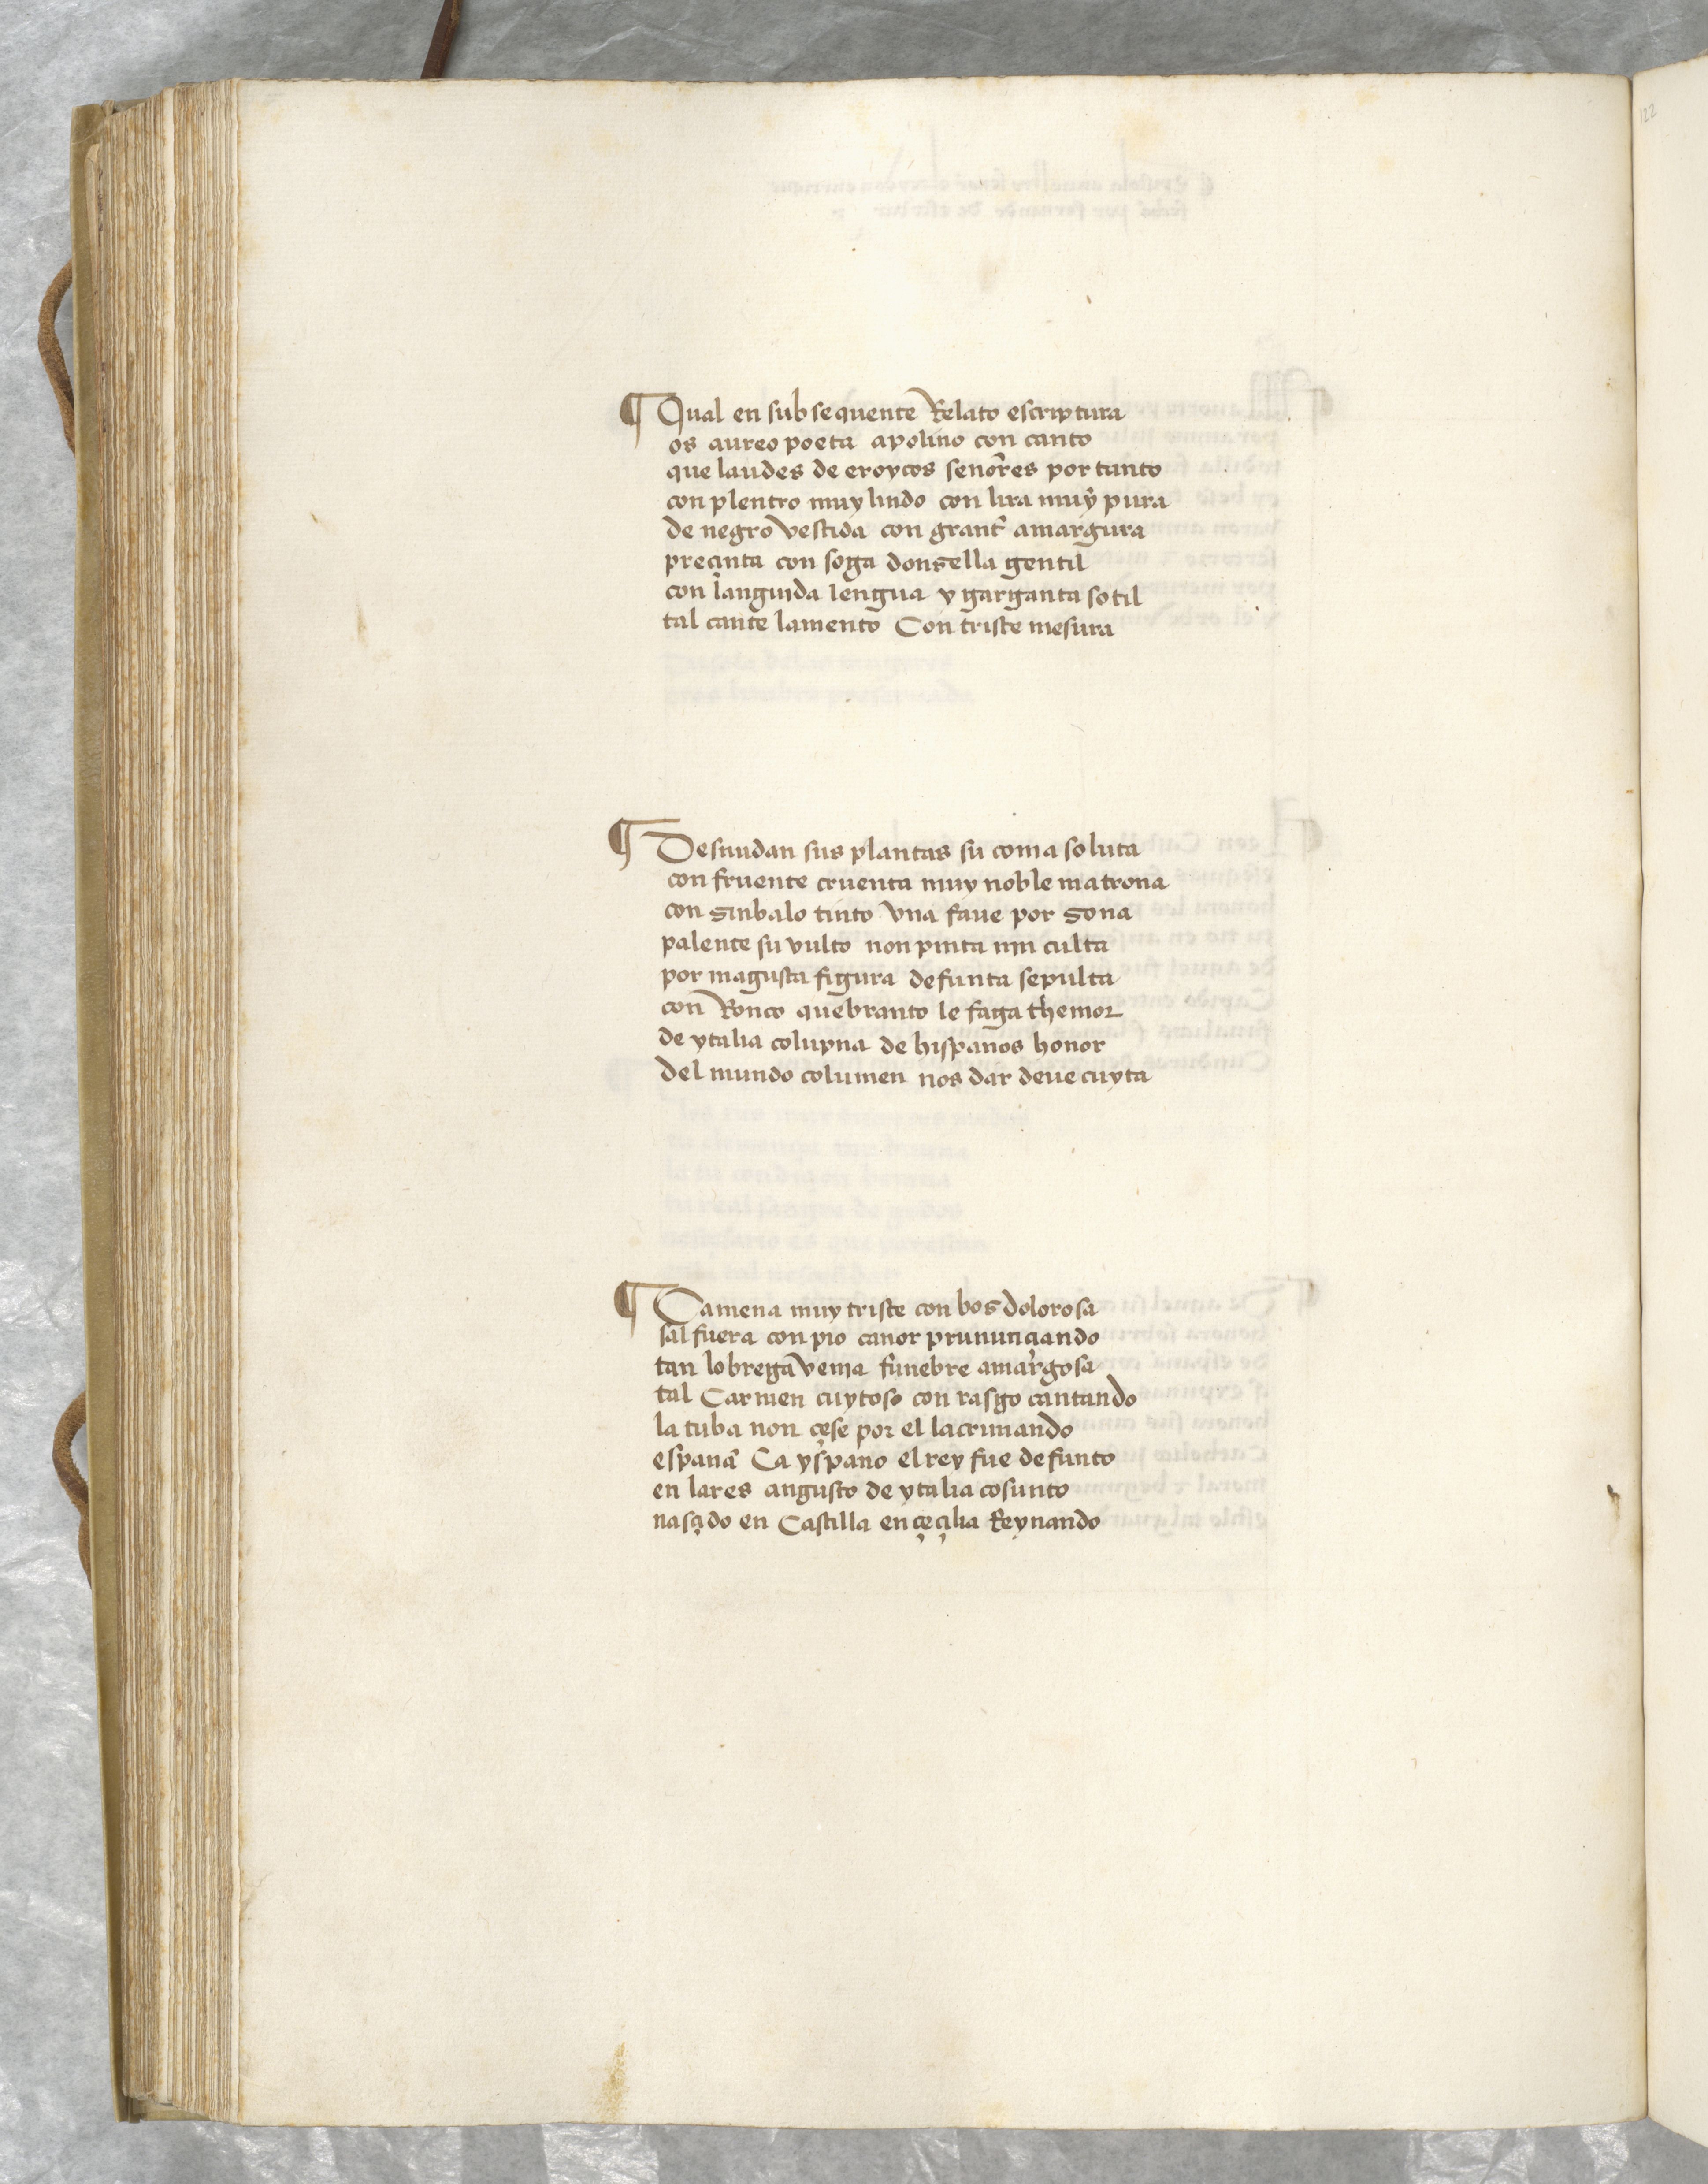 ¶ Qual en subsequente Relato escriptura
os aureo poeta apolino con canto
que laudes de eroycos señores por tanto
con plentro muy lindo con lira muy pura
de negro vestida con grant amargura
preçinta con soga donsella gentil
con languida lengua y garganta sotil
tal cante lamento Con triste mesura
¶ Desnudan sus plantas su coma soluta
con fruente cruenta muy noble matrona
con sinbalo tinto vna faue por sona
palente su vulto non pinta nin culta
por magusta figura defunta sepulta
con Ronco quebranto le faga themor
de ytalia colupna de hispanos honor
del mundo columen nos dar deue cuyta
¶ Camena muy triste con bos dolorosa
sal fuera con pio canor prununciando
tan lobrega venia funebre amargosa
tal Carmen cuytoso con rasgo cantando
la tuba non çese por el lacrimando
españa Ca yspano el rey fue defunto
en lares angusto de ytalia cosunto
nasçido en Castilla en çeçilia Reynando
122